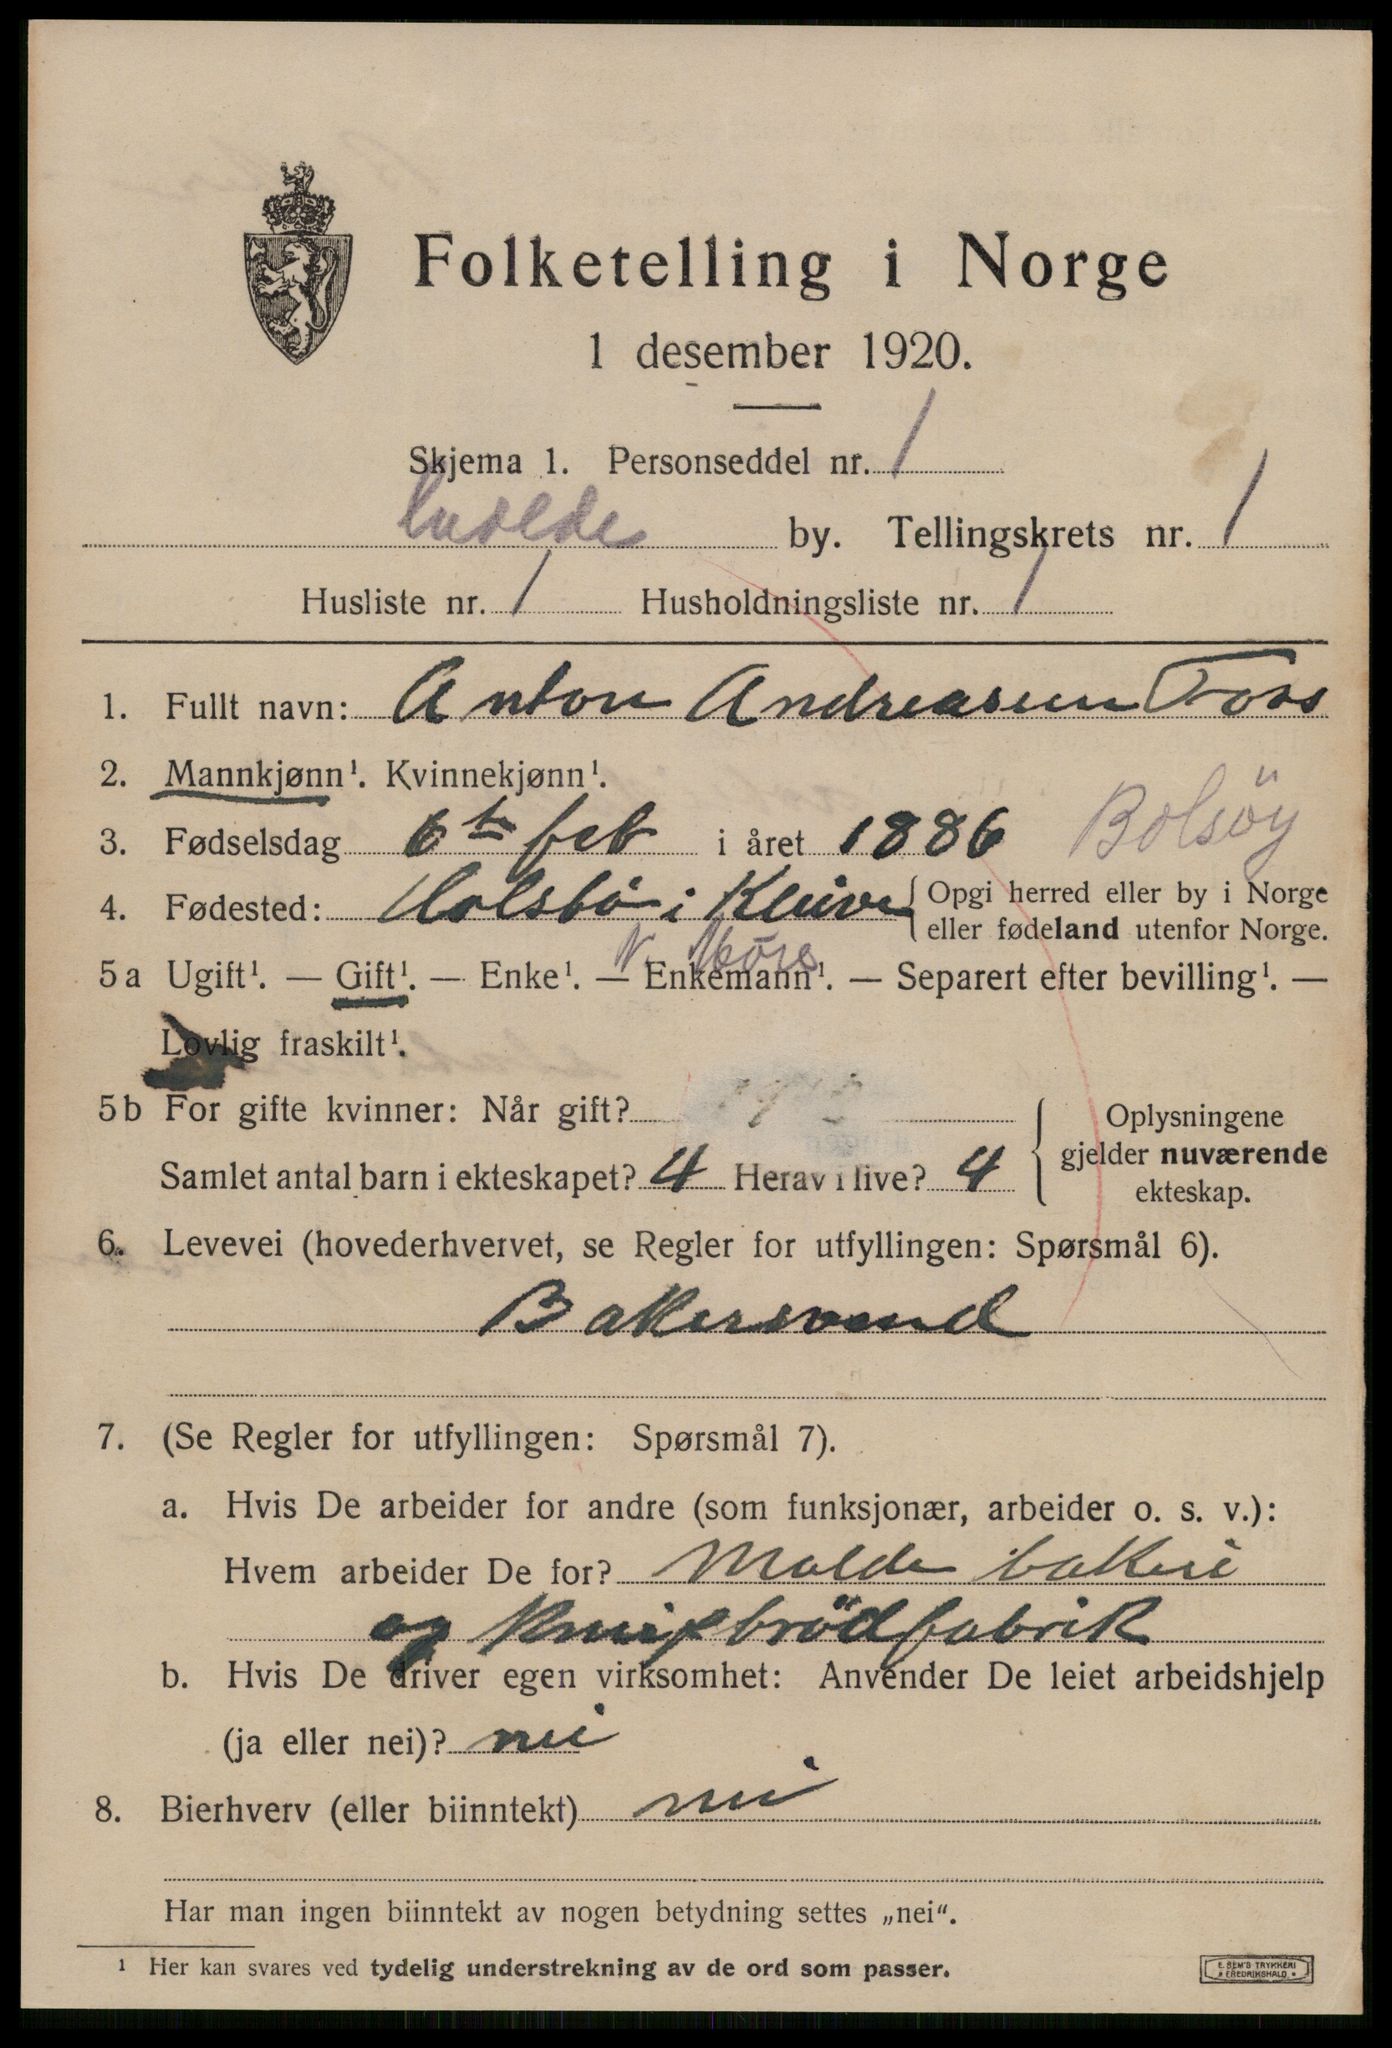 Folketelling i Norge
1 desember 1920.
Skjema 1. Personseddel nr. 1
Molde by. Tellingskrets nr. 1
Husliste nr. 1 Husholdningsliste nr. 1
1. Fullt navn: Anton Andreasen Foss
2. Mannkjønn¹. Kvinnekjønn¹.
3. Fødselsdag 6te feb i året 1886 Bolsöy
4. Fødested: Holsbö i Kleive { Opgi herred eller by i Norge
eller fødeland utenfor Norge.
N. Möre
5a Ugift¹. — Gift¹. — Enke¹. — Enkemann¹. — Separert efter bevilling¹. —
Lovlig fraskilt¹.
5b For gifte kvinner: Når gift?
Samlet antal barn i ekteskapet? 4 Herav i live? 4
Oplysningene
gjelder nuværende
ekteskap.
6. Levevei (hovederhvervet, se Regler for utfyllingen: Spørsmål 6).
Bakersvend
7. (Se Regler for utfyllingen: Spørsmål 7).
a. Hvis De arbeider for andre (som funksjonær, arbeider o. s. v.):
Hvem arbeider De for? Molde bakeri
og knipbrödfabrik
b. Hvis De driver egen virksomhet: Anvender De leiet arbeidshjelp
(ja eller nei)? nei
8. Bierhverv (eller biinntekt) nei
Har man ingen biinntekt av nogen betydning settes „nei“.
¹ Her kan svares ved tydelig understrekning av de ord som passer.
E. SEM'S TRYKKERI
FREDRIKSHALD